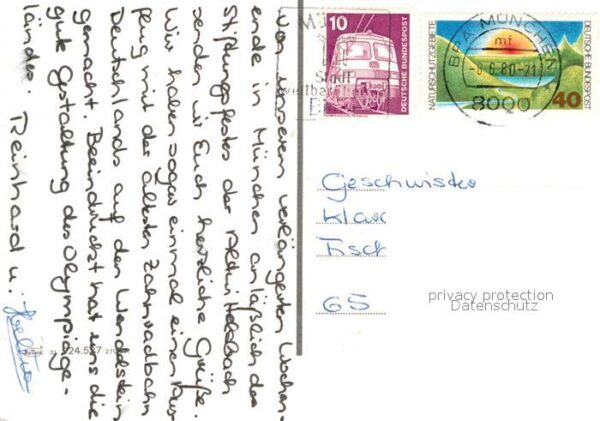 Von unserem verlängerten Wochen-
ende in München anläßlich des
Stiftungsfestes der
senden wir Euch herzliche Grüße.
Wir haben sogar einmal einen Aus-
flug mit der ältesten Zahnradbahn
Deutschlands auf den Wendelstein
gemacht. Beeindruckt hat uns die
gute Gestaltung des Olympiage-
ländes. Reinhard u.
10
DEUTSCHE BUNDESPOST
NATURSCHUTZGEBIETE
DEUTSCHE BUNDESPOST
40
BPA MÜNCHEN
mf
-6.6.80-21
8000
M
Stadt
Geschwister
Klaus
Fisch
65
privacy protection
Datenschutz